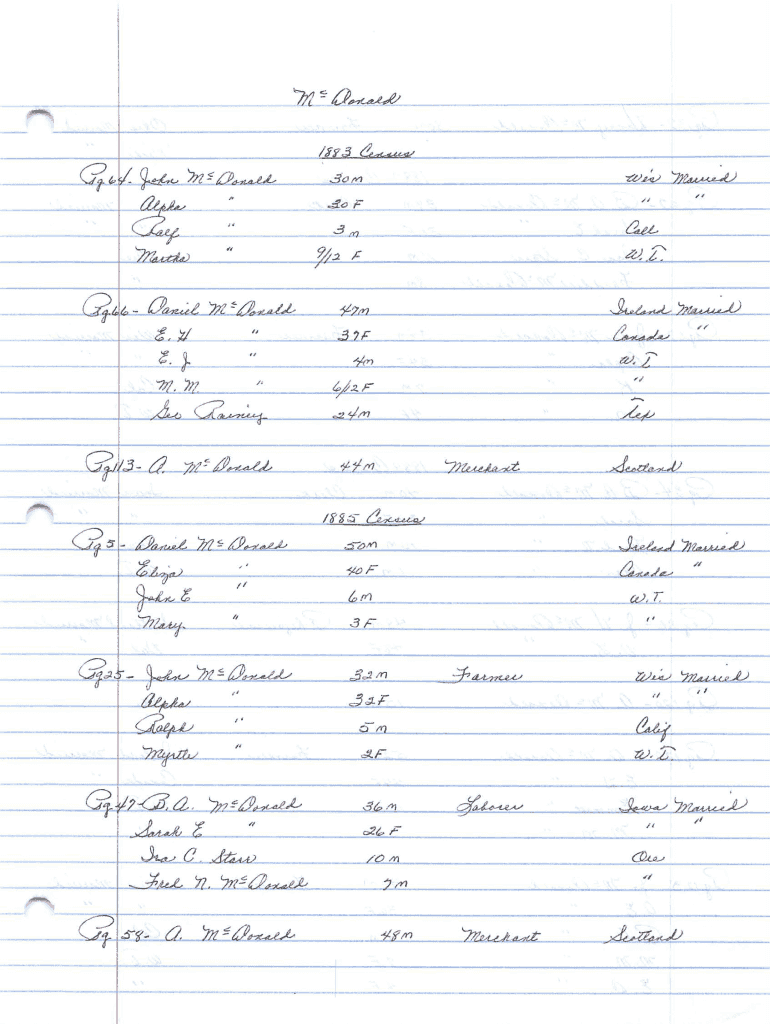 McDonald
1883 Census
Pg 64- John McDonald 30 M Wis Married
Alpha " 30 F " "
Ralf " 3 M Call
Martha " 9/12 F W.T.
Pg 66- Daniel McDonald 47 M Ireland Married
E. H " 37 F Canada "
E. J " 4 M W.T
M. M. " 6/12 F "
Geo Rainey 24 M Tex
Pg 113- A. McDonald 44 M Merchant Scotland
1885 Census
Pg 5- Daniel McDonald 50 M Ireland Married
Eliza " 40 F Canada "
John E " 6 M W.T.
Mary " 3 F "
Pg 25- John McDonald 32 M Farmer Wis Married
Alpha " 32 F " "
Ralph " 5 M Calif
Myrtle " 2 F W.T.
Pg 47- B. A. McDonald 36 M Laborer Iowa Married
Sarah E " 26 F " "
Ira C. Starr 10 M Ore
Fred N. McDonald 7 M "
Pg 58- A. McDonald 48 M Merchant Scotland